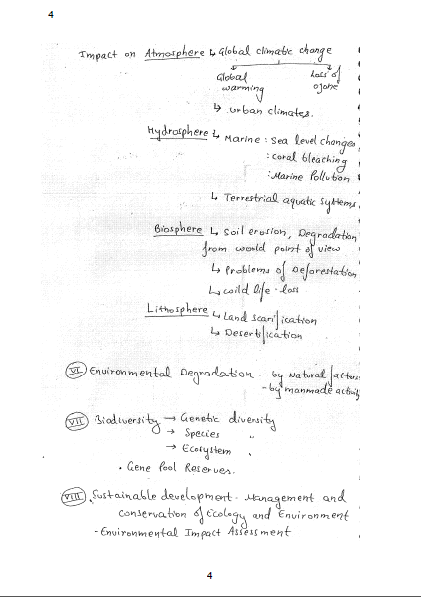 4
Impact on Atmosphere ↳ Global climatic change
Global warming
Loss of ozone
↳ urban climates.
Hydrosphere ↳ Marine : Sea level changes
: coral bleaching
: Marine Pollution
↳ Terrestrial aquatic systems.
Biosphere ↳ Soil erosion, Degradation
from world point of view
↳ Problems of Deforestation
↳ wild life loss
Lithosphere ↳ Land scarification
↳ Desertification
VI Environmental Degradation - by Natural factors
- by manmade activity
VII Biodiversity → Genetic diversity
→ Species "
→ Ecosystem "
• Gene Pool Reserves.
VIII Sustainable development. Management and
conservation of Ecology and Environment
- Environmental Impact Assessment
4